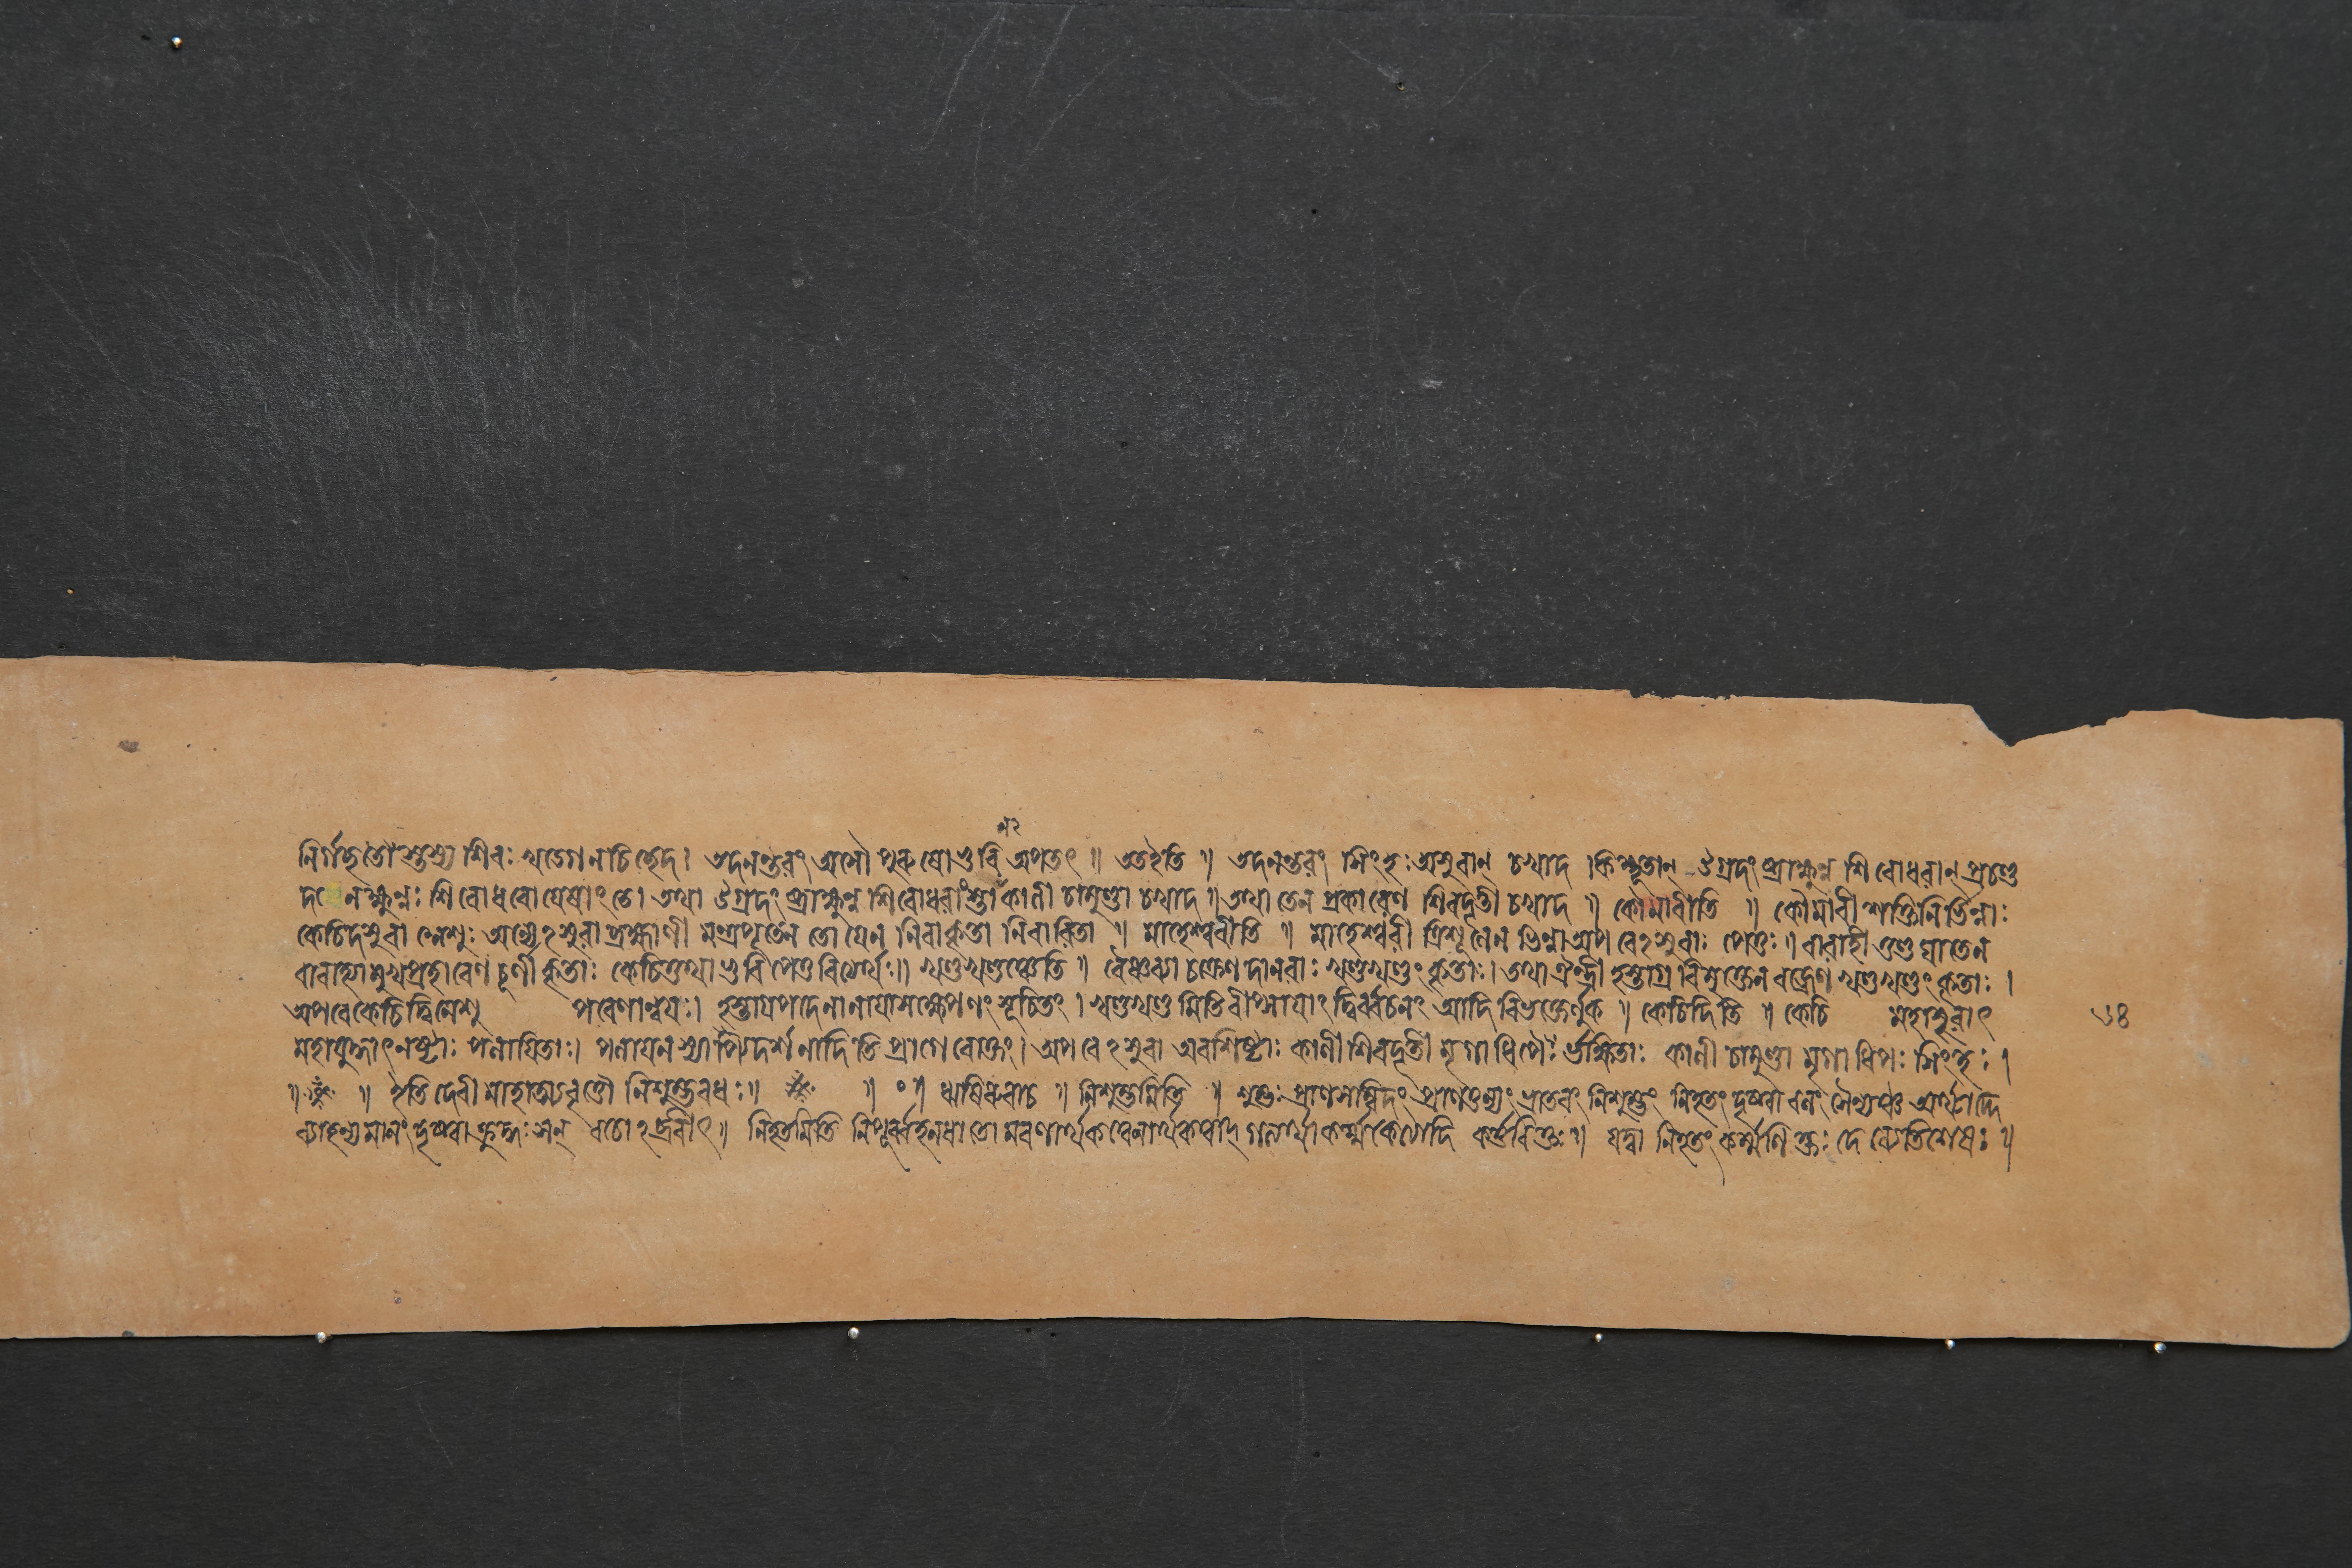 নির্গচ্ছতো স্তস্য শিরঃ খড্গেন চিচ্ছেদ। তদনন্তরং অসৌ পুরুষো ভুবি অপতৎ ॥ ততইতি ॥ তদনন্তরং সিংহঃ অসুরান্ চখাদ কিম্ভূতান্ উগ্রদংষ্ট্রাক্ষুন্ন শিরোধরান্ প্রচণ্ড
ক্ষুন্নঃ শিরোধরো যেষাং তে। তথা উগ্রদংষ্ট্রাক্ষুন্ন শিরোধরাংস্তাঁ কালী চামুণ্ডা চখাদ ॥ তথা তেন প্রকারেণ শিবদূতী চখাদ ॥ কৌমারীতি ॥ কৌমারী শক্তিনির্ভিন্নাঃ
কেচিদসুরা নেশুঃ অন্যেঽসুরা ব্রহ্মাণী মন্ত্রপূতেন তোয়েন নিরাকৃতা নিবারিতা ॥ মাহেশ্বরীতি ॥ মাহেশ্বরী ত্রিশূলেন ভিন্না অপরেঽসুরাঃ পেতুঃ ॥ বারাহী তুণ্ড ঘাতেন
বারাহ্যা মুখপ্রহারেণ চূর্ণী কৃতাঃ কেচিত্তথা ভুবি পেতুরিত্যর্থঃ॥ খণ্ডখণ্ডঞ্চেতি ॥ বৈষ্ণব্যা চক্রেণ দানবাঃ খণ্ডখণ্ডং কৃতাঃ। তথা ঐন্দ্রী হস্তাগ্র বিমুক্তেন বজ্রেণ খণ্ডখণ্ডং কৃতাঃ ।
অপরে কেচিদ্বিনেশু পরেণান্বয়ঃ। হস্তাগ্রপদেনানায়াসক্ষেপণং সূচিতং । খণ্ডখণ্ড মিতি বীপ্সায়াং দ্বির্ব্বচনং আদি বিভক্তের্লুক ॥ কেচিদিতি ॥ কেচি মহাসুরাৎ ৬৪
মহাযুদ্ধাৎ নষ্টাঃ পলায়িতাঃ। পলায়ন স্যাপি দর্শনাদিতি প্রাগে বোক্তং। অপরেঽসুরা অবশিষ্টাঃ কালী শিবদূতী মৃগাধিপৈঃ র্ভক্ষিতাঃ কালী চামুণ্ডা মৃগাধিপঃ সিংহঃ ।
॥ ॥ ইতি দেবী মাহাত্ম্যবৃত্তৌ নিশুম্ভবধঃ॥ ॥ ০ ॥ ঋষিরুবাচ ॥ নিশুম্ভমিতি ॥ শুম্ভঃ প্রাণসম্মিতং প্রাণতুল্যং ভ্রাতরং নিশুম্ভং নিহতং দৃষ্ট্বা বলং সৈন্যঞ্চ অর্থাদ্দে
ব্যাহন্যমানং দৃষ্ট্বা ক্রুদ্ধঃ সন্ বচোঽব্রবীৎ॥ নিহতমিতি নিপূর্ব্ব হনধাতো মরণার্থকত্বেনার্থকত্বাদ্ কর্ত্তরিক্তঃ॥ যদ্বা নিহতং কর্ম্মণি ক্তঃ দে ব্যেতিশেষঃ ॥